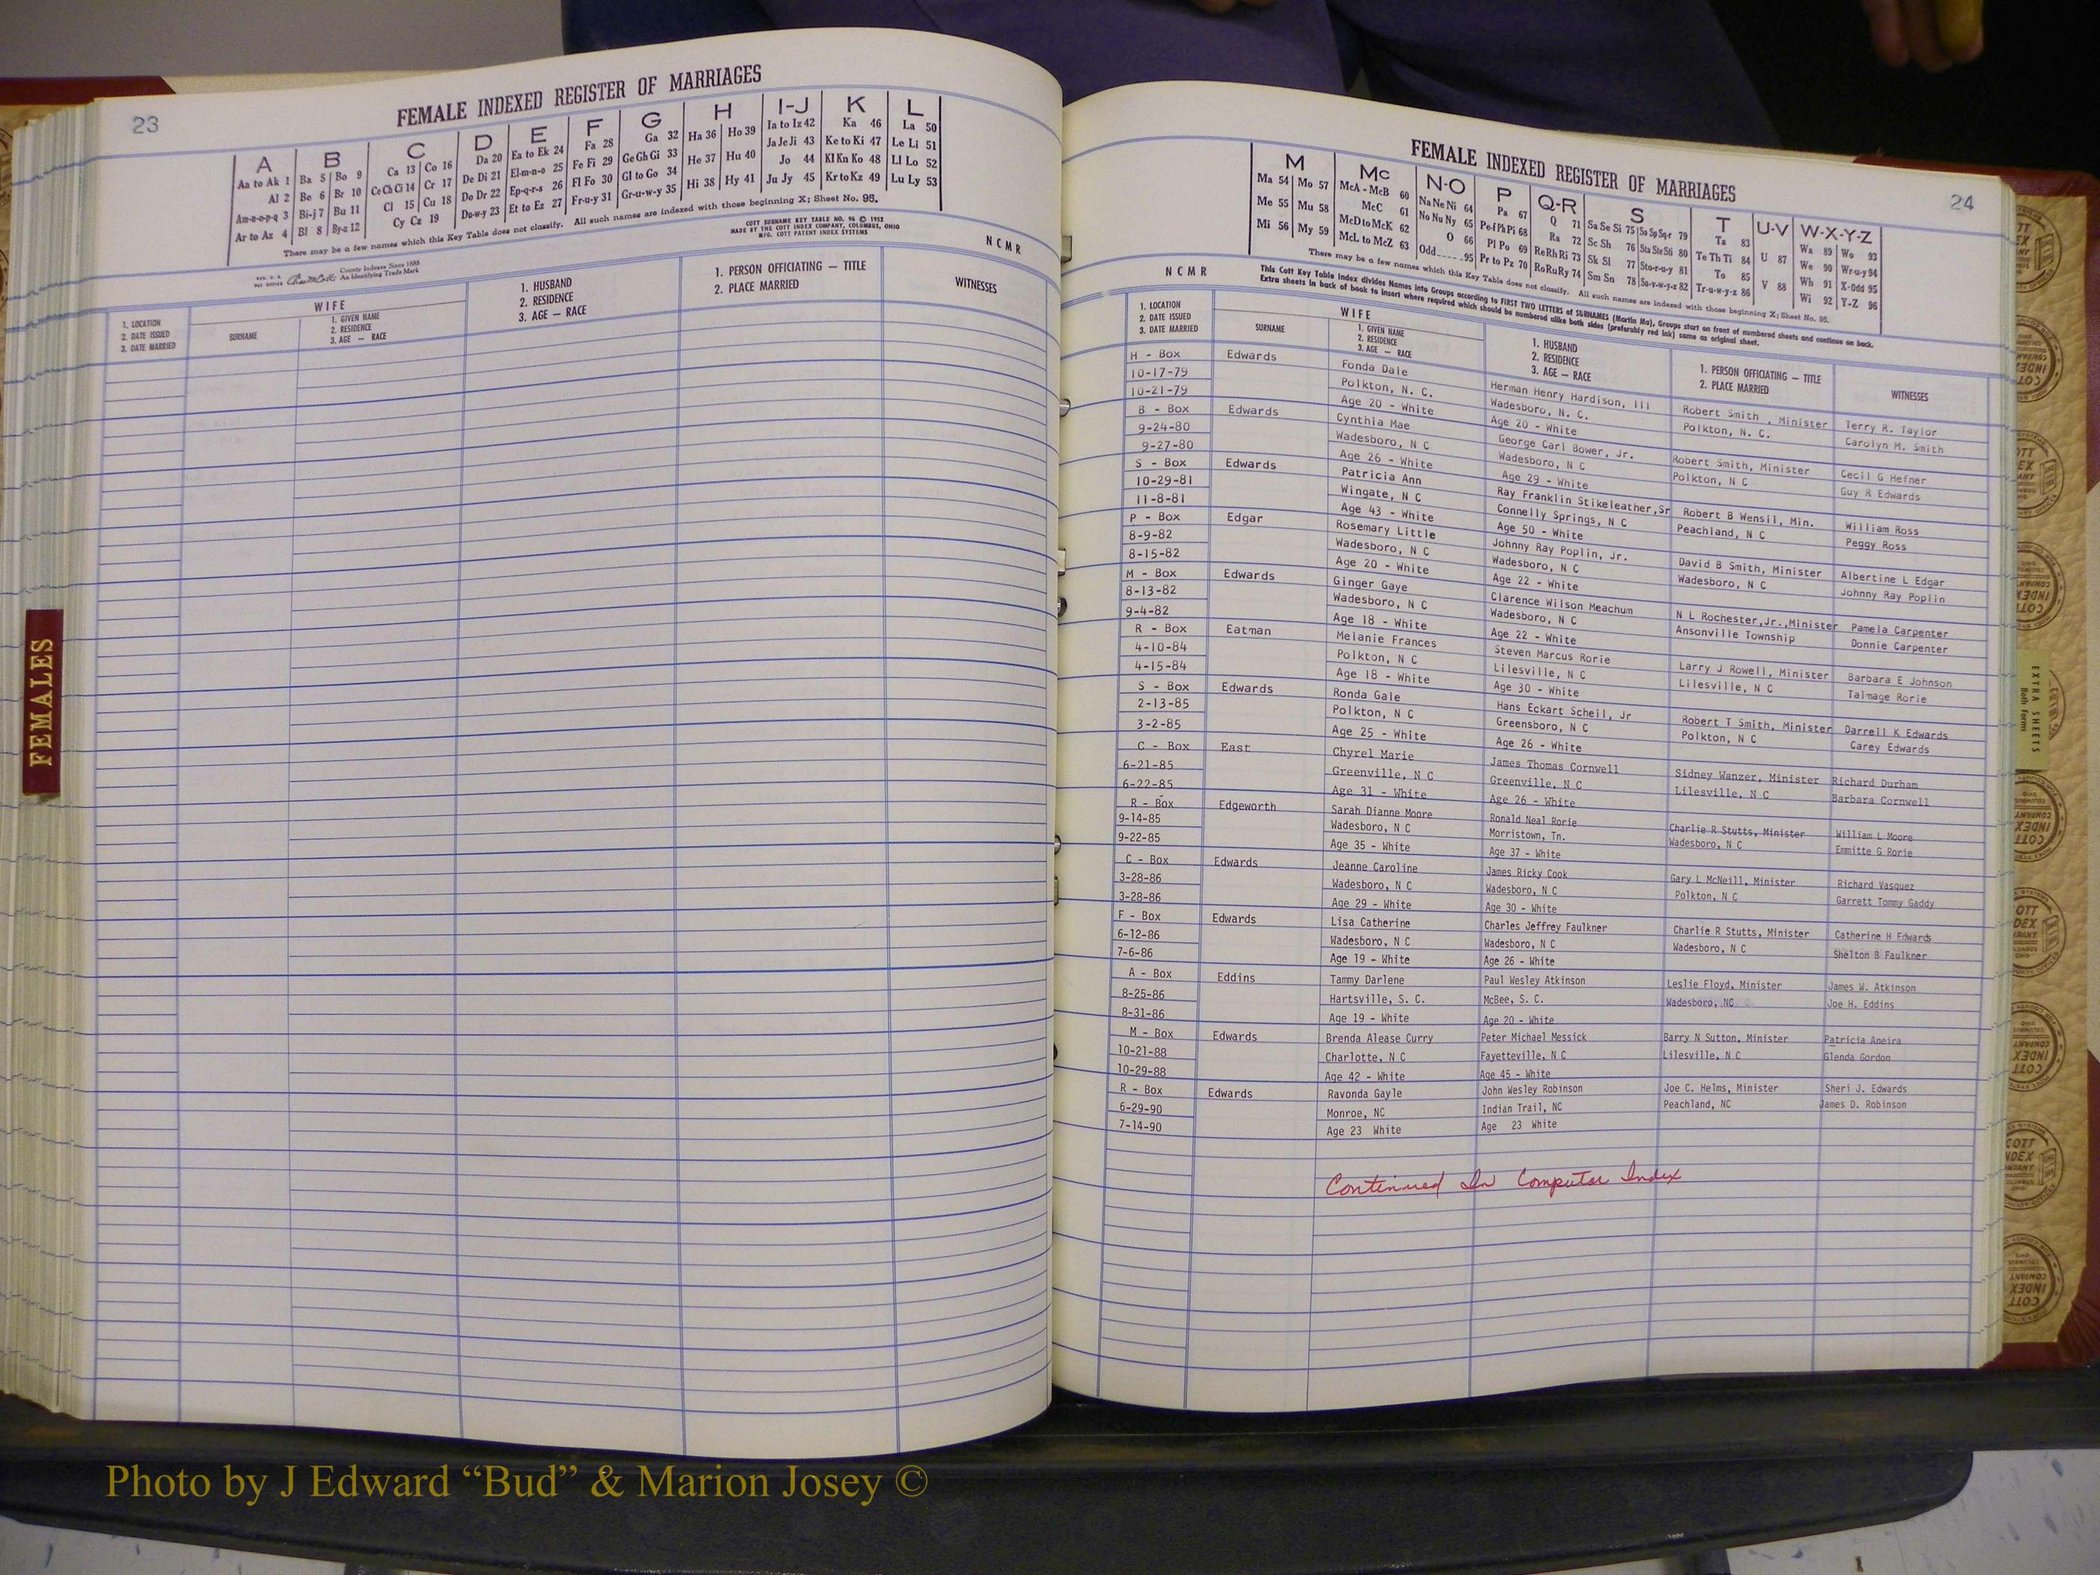 23
FEMALE INDEXED REGISTER OF MARRIAGES
A B C D E F G H I-J K L
Aa to Ak 1 Ba 5 Bo 9 Ca 13 Co 16 Da 20 Ea to Ek 24 Fa 28 Ga 32 Ha 36 Ho 39 Ia to Iz 42 Ka 46 La 50
Al 2 Be 6 Br 10 Ce Ch Ci 14 Cr 17 De Di 21 El-m-n-o 25 Fe Fi 29 Ge Gh Gi 33 He 37 Hu 40 Ja Je Ji 43 Ke to Ki 47 Le Li 51
Am-n-o-p-q 3 Bi-j 7 Bu 11 Cl 15 Cu 18 Do Dr 22 Ep-q-r-s 26 Fl Fo 30 Gl to Go 34 Hi 38 Hy 41 Jo 44 Kl Kn Ko 48 Ll Lo 52
Ar to Az 4 Bl 8 By-z 12 Cy Cz 19 Du-w-y 23 Et to Ez 27 Fr-u-y 31 Gr-u-w-y 35 Ju Jy 45 Kr to Kz 49 Lu Ly 53
There may be a few names which this Key Table does not classify. All such names are indexed with those beginning X; Sheet No. 95.
COTT SURNAME KEY TABLE NO. 96 © 1952
MADE BY THE COTT INDEX COMPANY, COLUMBUS, OHIO
MFG. COTT PATENT INDEX SYSTEMS
County Indexes Since 1888
An Identifying Trade Mark
N C M R
1. LOCATION
2. DATE ISSUED
3. DATE MARRIED
WIFE
SURNAME
1. GIVEN NAME
2. RESIDENCE
3. AGE — RACE
1. HUSBAND
2. RESIDENCE
3. AGE — RACE
1. PERSON OFFICIATING — TITLE
2. PLACE MARRIED
WITNESSES
FEMALES
FEMALE INDEXED REGISTER OF MARRIAGES
24
M Mc N-O P Q-R S T U-V W-X-Y-Z
Ma 54 Mo 57 McA - McB 60 Na Ne Ni 64 Pa 67 Q 71 Sa Se Si 75 So Sp Sq-r 79 Ta 83 U 87 Wa 89 Wo 93
Me 55 Mu 58 McC 61 No Nu Ny 65 Pe-f Ph Pi 68 Ra 72 Sc Sh 76 Sta Ste Sti 80 Te Th Ti 84 V 88 We 90 Wr-u-y 94
Mi 56 My 59 McD to McK 62 O 66 Pl Po 69 Re Rh Ri 73 Sk Sl 77 Sto-r-u-y 81 To 85 Wh 91 X-Odd 95
McL to McZ 63 Odd 95 Pr to Pz 70 Ro Ru Ry 74 Sm Sn 78 Su-v-w-y-z 82 Tr-u-w-y-z 86 Wi 92 Y-Z 96
There may be a few names which this Key Table does not classify. All such names are indexed with those beginning X; Sheet No. 95.
N C M R
This Cott Key Table Index divides Names into Groups according to FIRST TWO LETTERS of SURNAMES (Martin Ma), Groups start on front of numbered sheets and continue on back.
Extra sheets in back of book to insert where required which should be numbered alike both sides (preferably red ink) same as original sheet.
1. LOCATION
2. DATE ISSUED
3. DATE MARRIED
WIFE
SURNAME
1. GIVEN NAME
2. RESIDENCE
3. AGE — RACE
1. HUSBAND
2. RESIDENCE
3. AGE — RACE
1. PERSON OFFICIATING — TITLE
2. PLACE MARRIED
WITNESSES
H - Box Edwards Fonda Dale Herman Henry Hardison, III Robert Smith , Minister Terry R. Taylor
10-17-79 Polkton, N. C. Wadesboro, N. C. Polkton, N. C. Carolyn M. Smith
10-21-79 Age 20 - White Age 20 - White
B - Box Edwards Cynthia Mae George Carl Bower, Jr. Robert Smith, Minister Cecil G Hefner
9-24-80 Wadesboro, N C Wadesboro, N C Polkton, N C Guy R Edwards
9-27-80 Age 26 - White Age 29 - White
S - Box Edwards Patricia Ann Ray Franklin Stikeleather,Sr Robert B Wensil, Min. William Ross
10-29-81 Wingate, N C Connelly Springs, N C Peachland, N C Peggy Ross
11-8-81 Age 43 - White Age 50 - White
P - Box Edgar Rosemary Little Johnny Ray Poplin, Jr. David B Smith, Minister Albertine L Edgar
8-9-82 Wadesboro, N C Wadesboro, N C Wadesboro, N C Johnny Ray Poplin
8-15-82 Age 20 - White Age 22 - White
M - Box Edwards Ginger Gaye Clarence Wilson Meachum N L Rochester,Jr.,Minister Pamela Carpenter
8-13-82 Wadesboro, N C Wadesboro, N C Ansonville Township Donnie Carpenter
9-4-82 Age 18 - White Age 22 - White
R - Box Eatman Melanie Frances Steven Marcus Rorie Larry J Rowell, Minister Barbara E Johnson
4-10-84 Polkton, N C Lilesville, N C Lilesville, N C Talmage Rorie
4-15-84 Age 18 - White Age 30 - White
S - Box Edwards Ronda Gale Hans Eckart Scheil, Jr Robert T Smith, Minister Darrell K Edwards
2-13-85 Polkton, N C Greensboro, N C Polkton, N C Carey Edwards
3-2-85 Age 25 - White Age 26 - White
C - Box East Chyrel Marie James Thomas Cornwell Sidney Wanzer, Minister Richard Durham
6-21-85 Greenville, N C Greenville, N C Lilesville, N C Barbara Cornwell
6-22-85 Age 31 - White Age 26 - White
R - Box Edgeworth Sarah Dianne Moore Ronald Neal Rorie Charlie R Stutts, Minister William L Moore
9-14-85 Wadesboro, N C Morristown, Tn. Wadesboro, N C Emmitte G Rorie
9-22-85 Age 35 - White Age 37 - White
C - Box Edwards Jeanne Caroline James Ricky Cook Gary L McNeill, Minister Richard Vasquez
3-28-86 Wadesboro, N C Wadesboro, N C Polkton, N C Garrett Tommy Gaddy
3-28-86 Age 29 - White Age 30 - White
F - Box Edwards Lisa Catherine Charles Jeffrey Faulkner Charlie R Stutts, Minister Catherine H Edwards
6-12-86 Wadesboro, N C Wadesboro, N C Wadesboro, N C Shelton B Faulkner
7-6-86 Age 19 - White Age 26 - White
A - Box Eddins Tammy Darlene Paul Wesley Atkinson Leslie Floyd, Minister James W. Atkinson
8-25-86 Hartsville, S. C. McBee, S. C. Wadesboro, NC Joe H. Eddins
8-31-86 Age 19 - White Age 20 - White
M - Box Edwards Brenda Alease Curry Peter Michael Messick Barry N Sutton, Minister Patricia Aneira
10-21-88 Charlotte, N C Fayetteville, N C Lilesville, N C Glenda Gordon
10-29-88 Age 42 - White Age 45 - White
R - Box Edwards Ravonda Gayle John Wesley Robinson Joe C. Helms, Minister Sheri J. Edwards
6-29-90 Monroe, NC Indian Trail, NC Peachland, NC James D. Robinson
7-14-90 Age 23 White Age 23 White
Continued In Computer Index
EXTRA SHEETS
Both Forms
COTT
INDEX
COMPANY
COLUMBUS
OHIO
Photo by J Edward “Bud” & Marion Josey ©